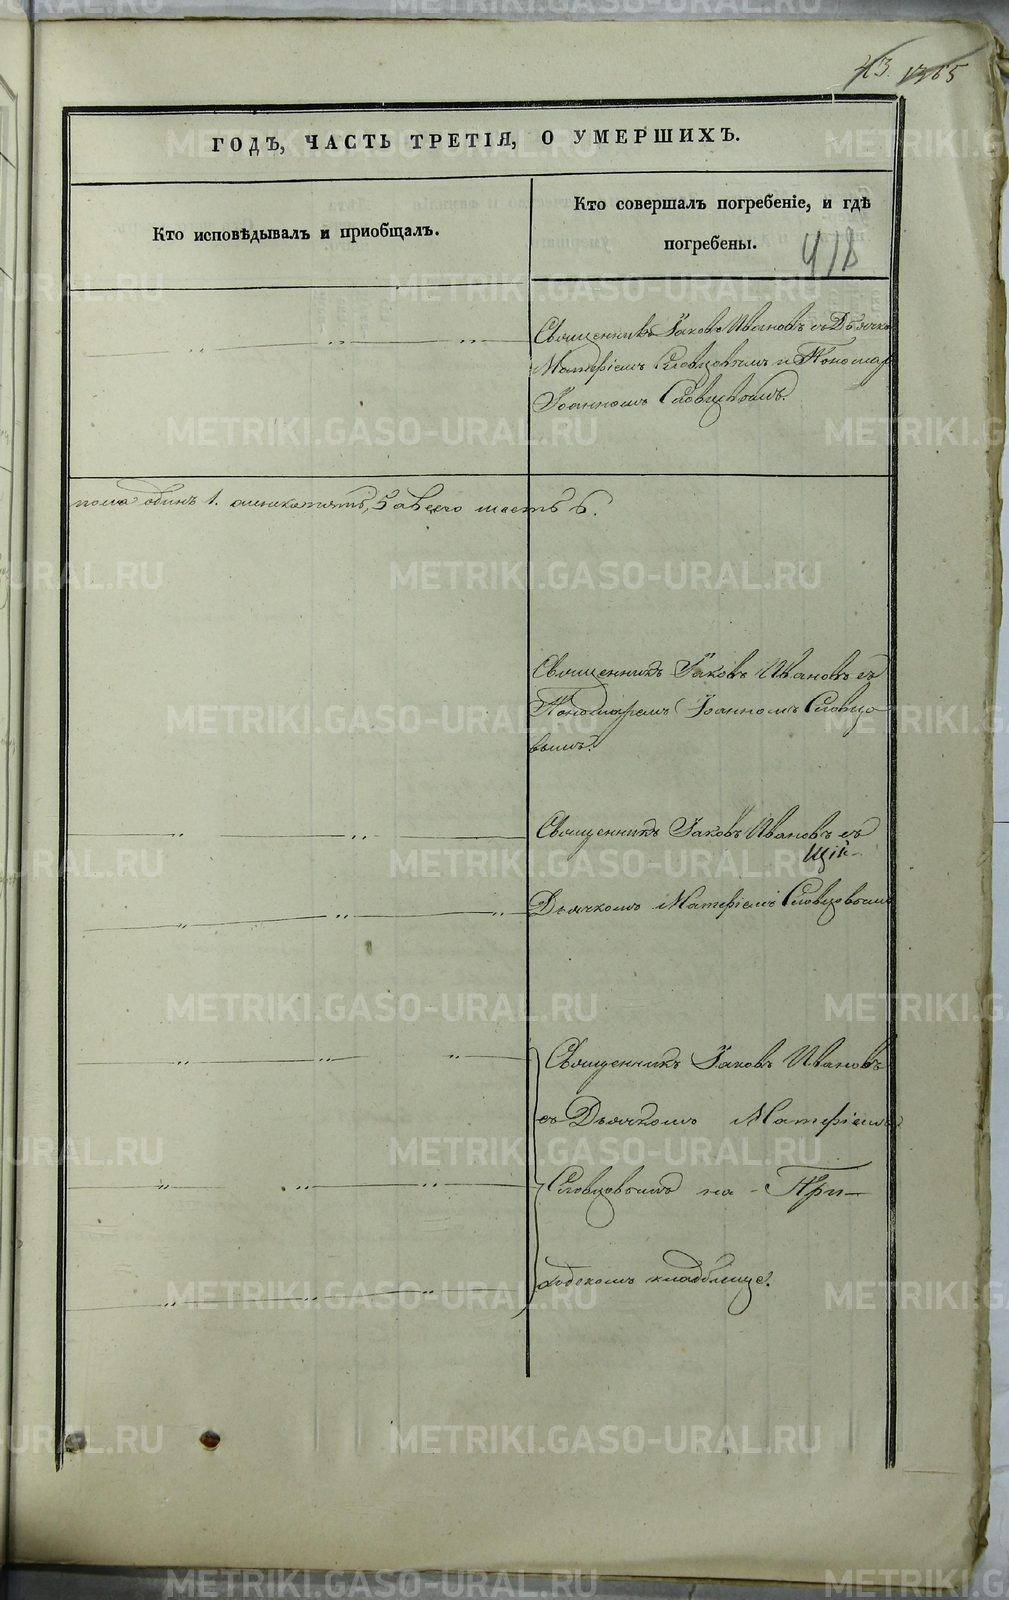 43. 1365
ГОДЪ, ЧАСТЬ ТРЕТІЯ, О УМЕРШИХЪ.
Кто исповѣдывалъ и приобщалъ.
Кто совершалъ погребеніе, и гдѣ
погребены.
418
Священникъ Іаковъ Ивановъ съ Дьячко
Матфіемъ Словцовымъ и Пономар
Іоанномъ Словцовымъ.
пола одинъ 1. 5 а всего шесть 6.
Священникъ Іаковъ Ивановъ съ
Пономаремъ Іоанномъ Словцо
вымъ.
Священникъ Іаковъ Ивановъ съ
Дьячкомъ Матфіемъ Словцовымъ
Священникъ Іаковъ Ивановъ
съ Дьячкомъ Матфіемъ
Словцовымъ на При-
ходскомъ кладбище.
METRIKI.GASO-URAL.RU